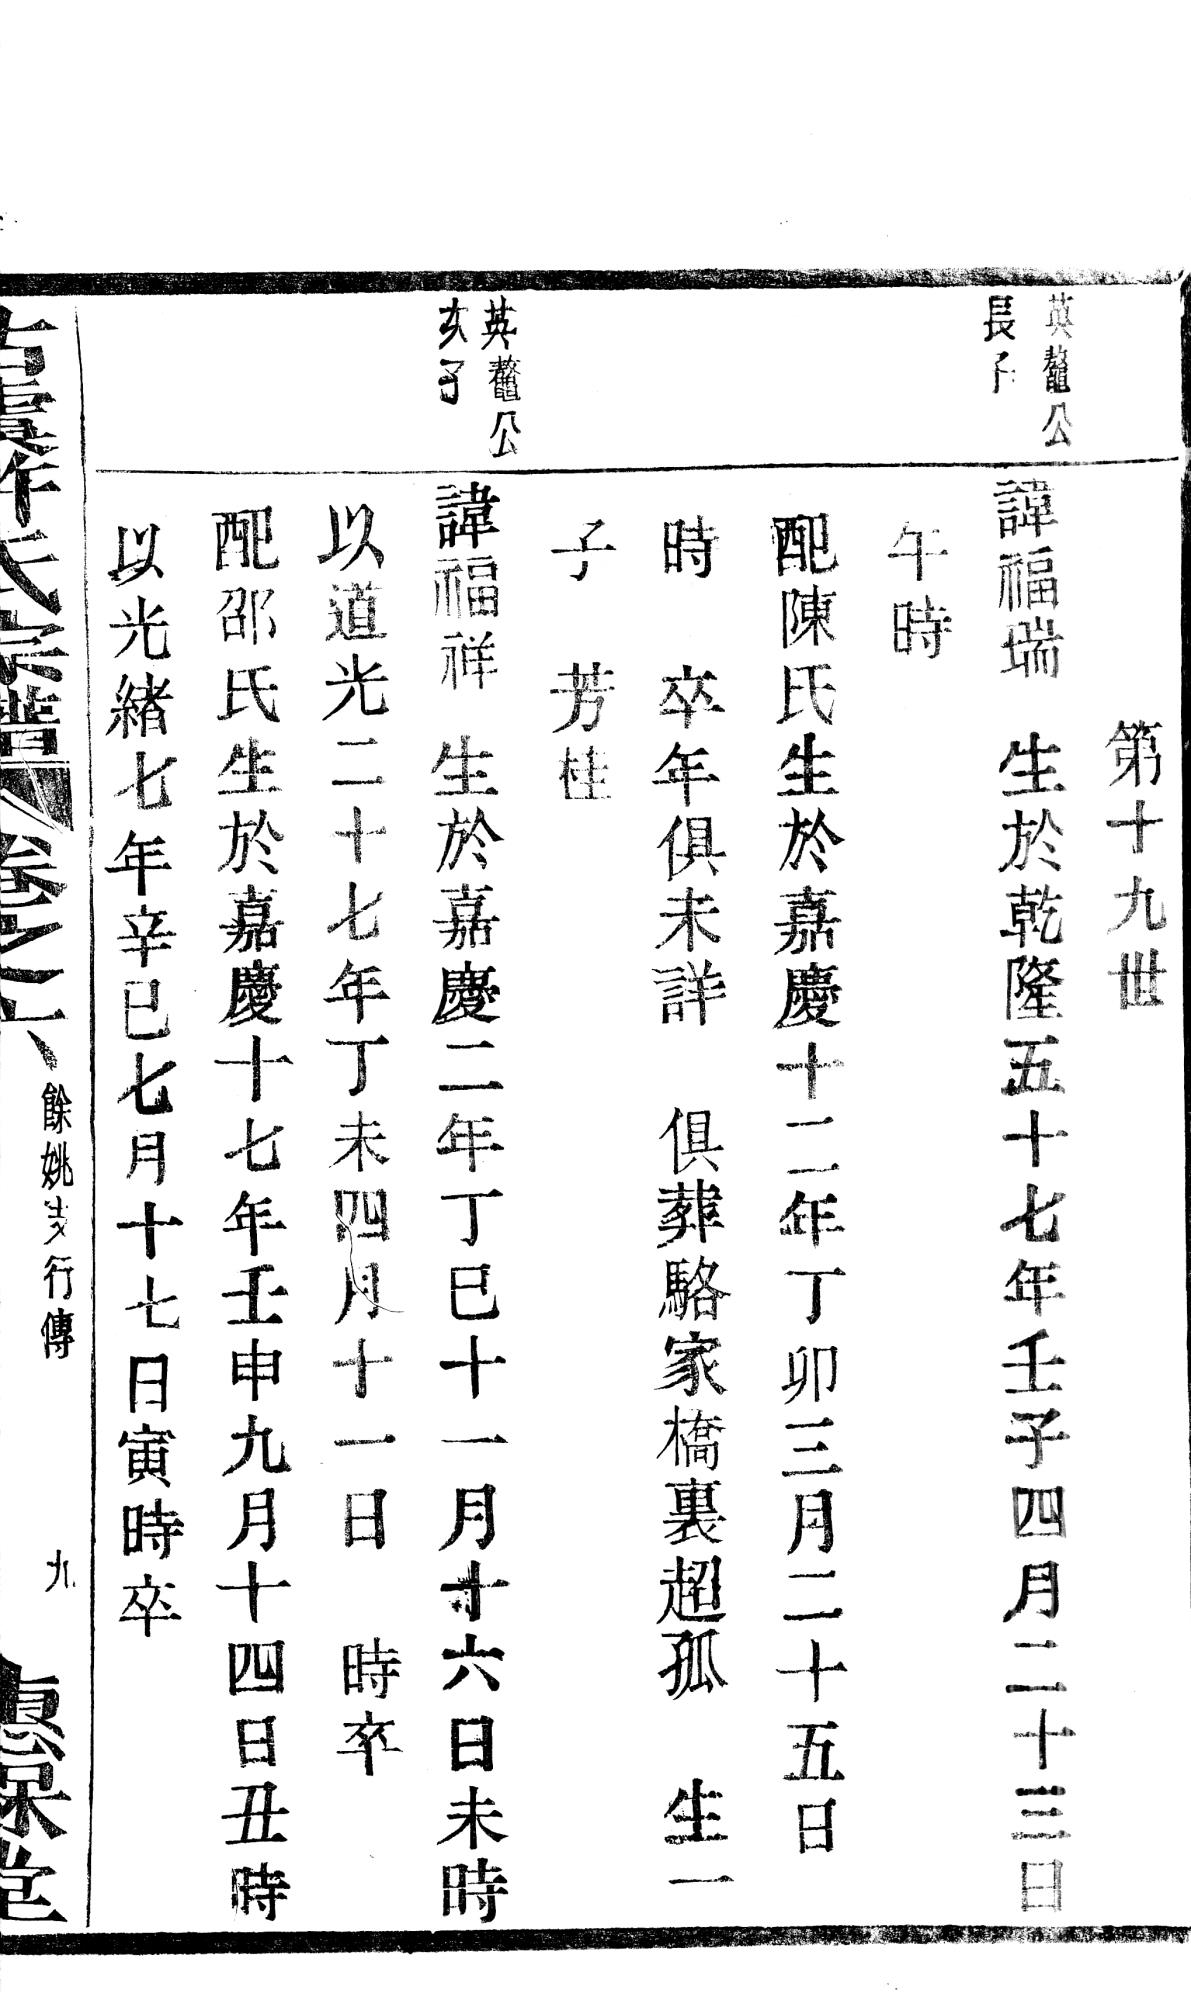 第十九世
英鼇公
長子
諱福瑞　生於乾隆五十七年壬子四月二十三日
午時
配陳氏生於嘉慶十二年丁卯三月二十五日
時　卒年俱未詳　俱葬駱家橋裏超孤　生一
子　芳桂
英鼇公
次子
諱福祥　生於嘉慶二年丁巳十一月十六日未時
以道光二十七年丁未四月十一日　時卒
配邵氏生於嘉慶十七年壬申九月十四日丑時
以光緒七年辛巳七月十七日寅時卒
古虞許氏宗譜　卷之六　餘姚支行傳　九　惠保堂